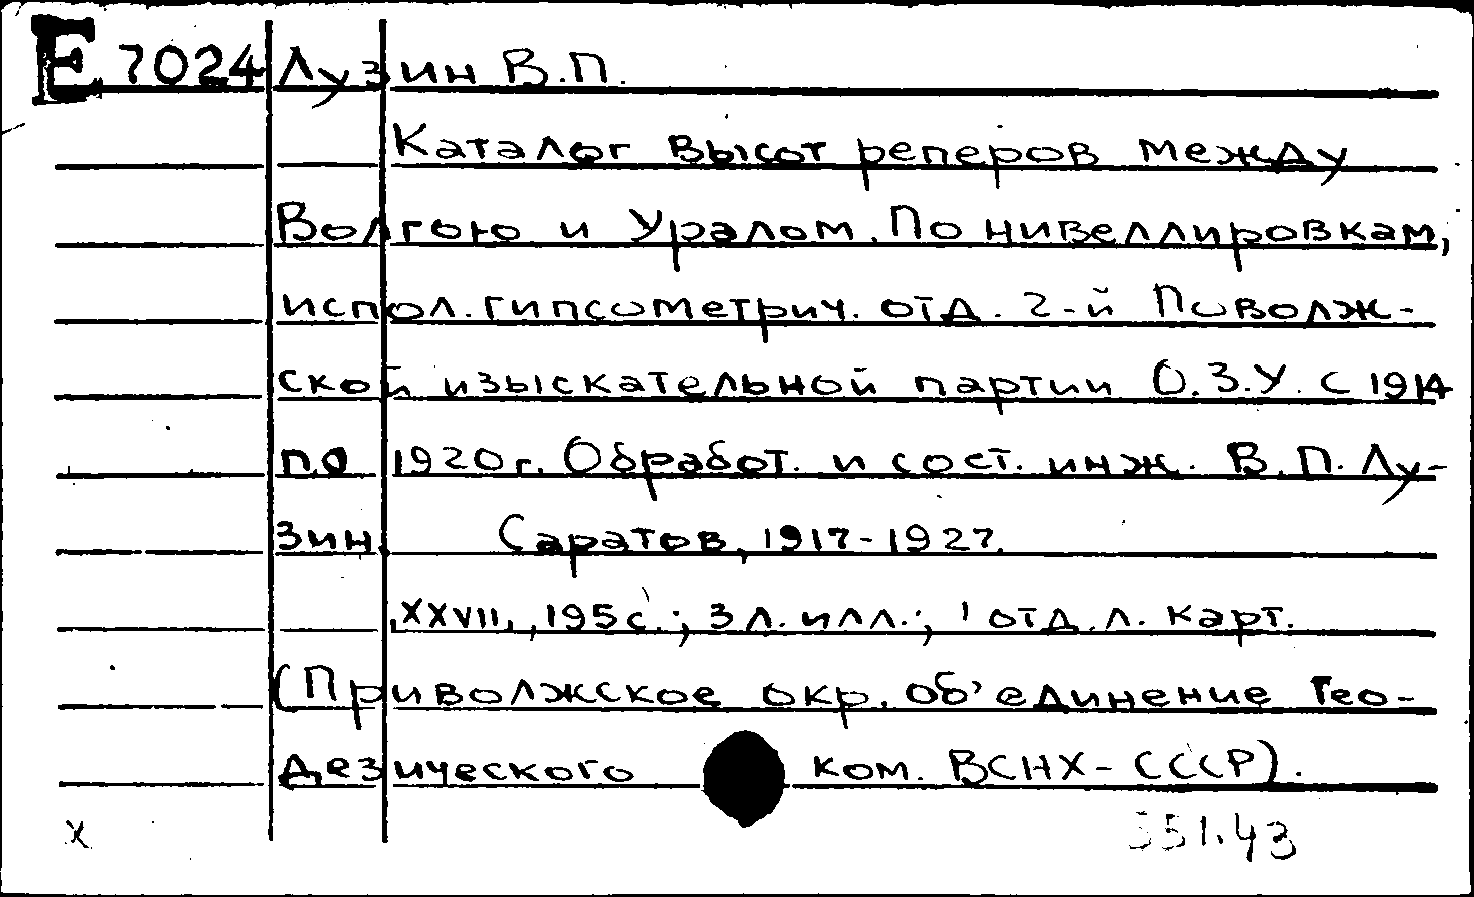 Е 7024 Лузин В.П.
Каталог высот реперов между
Волгою и Уралом. По нивеллировкам,
испол. гипсометрич. отд. 2-й Поволж-
ской изыскательной партии О.З.У. с 1914
по 1920г. Обработ. и сост. инж. В.П. Лу-
зин. Саратов, 1917-1927.
XXVII, 195с.; 3 л. илл.; 1 отд. л. карт.
(Приволжское окр. об'единение Гео-
дезического ком. ВСНХ-СССР).
551.43
х